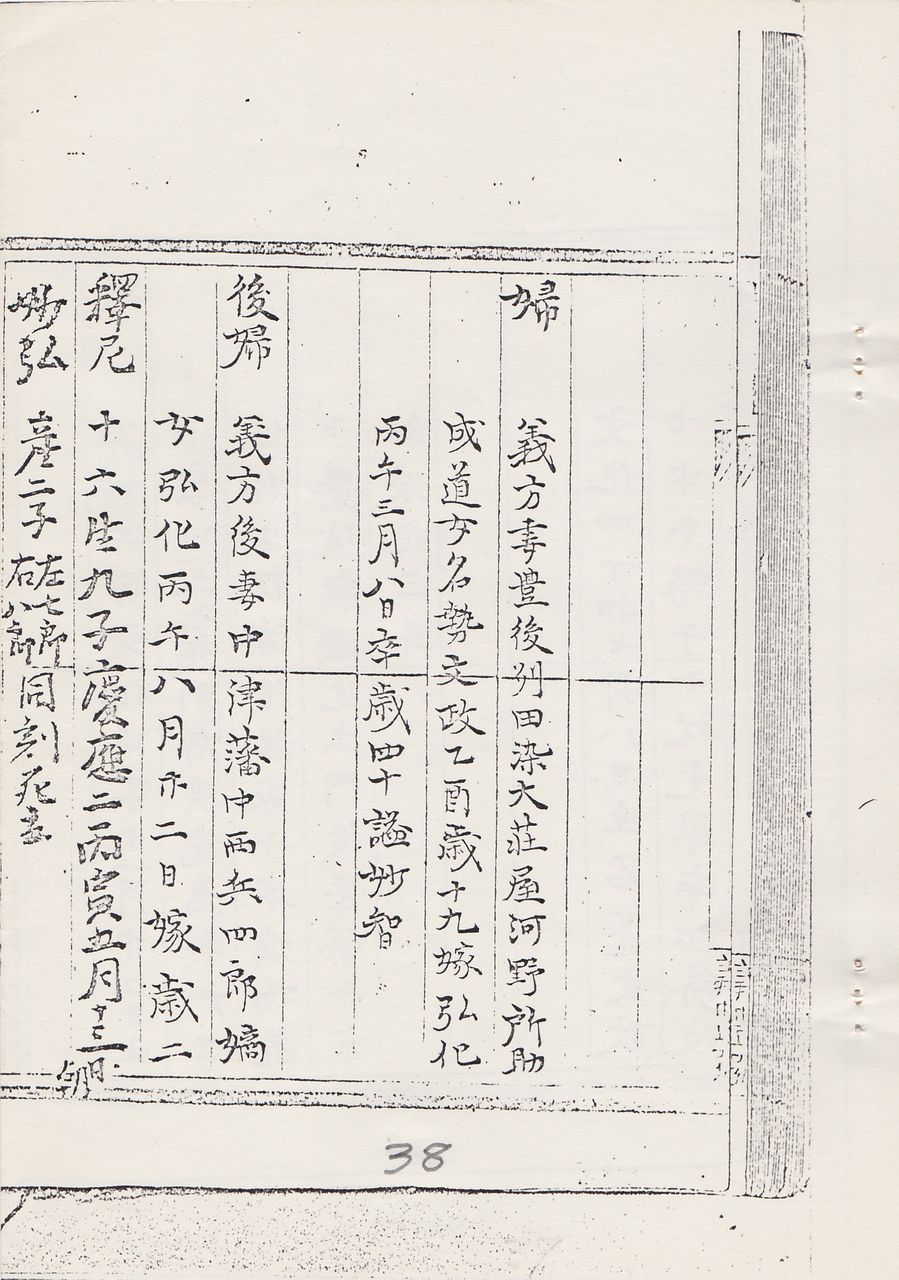 婦 義方妻豊後列田染大荘屋河野所助
成道女名勢文政乙酉歳十九嫁弘化
丙午三月八日卒歳四十謚妙智
後婦 義方後妻中津藩中西兵四郎嫡
女弘化丙午八月廿二日嫁歳二
釋尼 十六生九子慶應二丙寅五月十三日朝
妙弘 産二子左七郎右八郎同刻死去
38